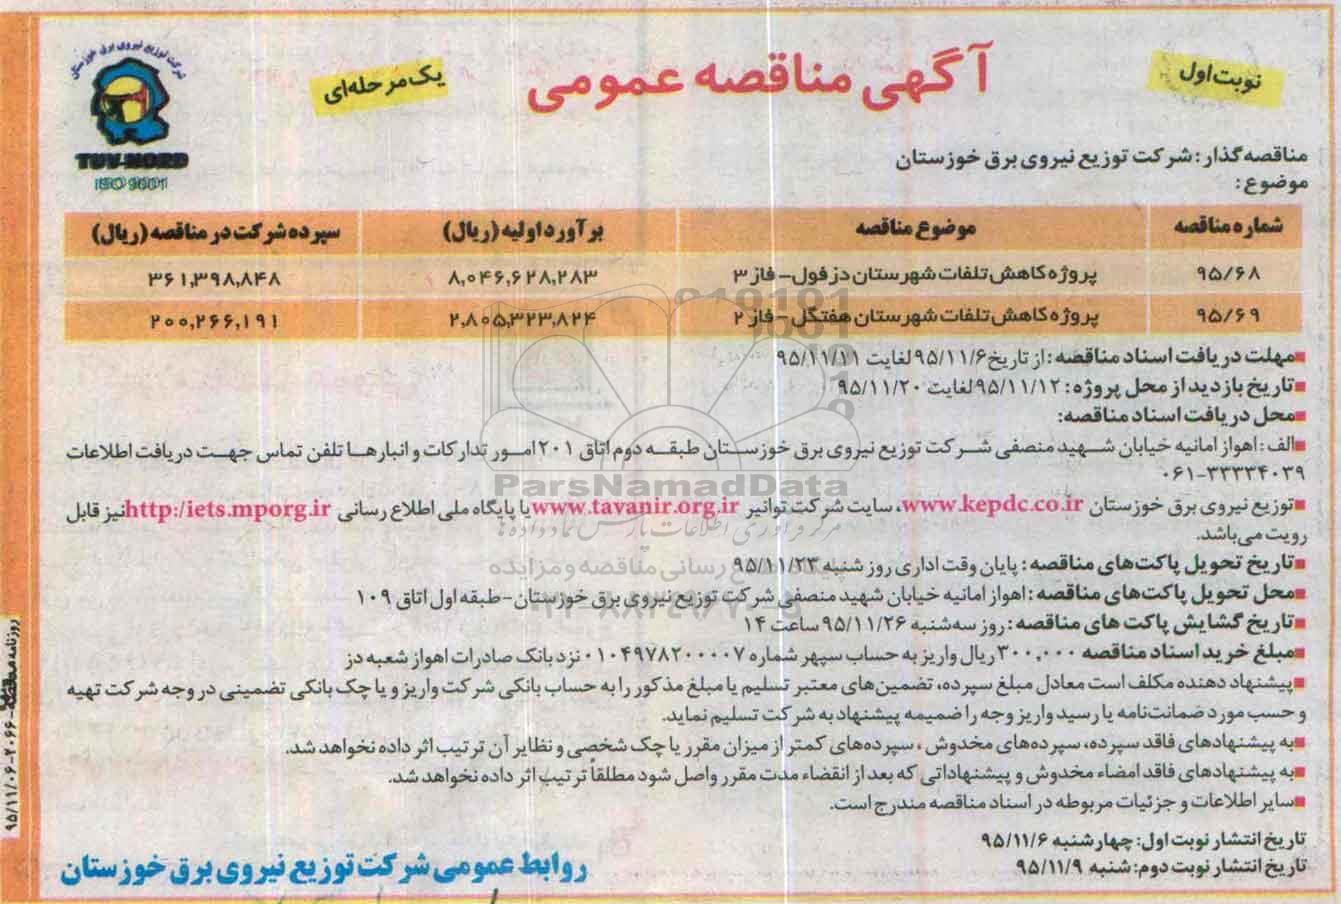 نوبت اول
آگهی مناقصه عمومی
یک مرحله‌ای
شرکت توزیع نیروی برق خوزستان
TUV-NORD
ISO 9001
مناقصه گذار: شرکت توزیع نیروی برق خوزستان
موضوع:
شماره مناقصه موضوع مناقصه برآورد اولیه (ریال) سپرده شرکت در مناقصه (ریال)
۹۵/۶۸ پروژه کاهش تلفات شهرستان دزفول- فاز ۳ ۸,۰۴۶,۶۲۸,۲۸۳ ۳۶۱,۳۹۸,۸۴۸
۹۵/۶۹ پروژه کاهش تلفات شهرستان هفتگل- فاز ۲ ۲,۸۰۵,۳۲۳,۸۲۴ ۲۰۰,۲۶۶,۱۹۱
■مهلت دریافت اسناد مناقصه: از تاریخ ۹۵/۱۱/۶ لغایت ۹۵/۱۱/۱۱
■تاریخ بازدید از محل پروژه: ۹۵/۱۱/۱۲ لغایت ۹۵/۱۱/۲۰
■محل دریافت اسناد مناقصه:
■الف: اهواز امانیه خیابان شهید منصفی شرکت توزیع نیروی برق خوزستان طبقه دوم اتاق ۲۰۱ امور تدارکات و انبارها تلفن تماس جهت دریافت اطلاعات
۰۶۱-۳۳۳۳۴۰۳۹
■توزیع نیروی برق خوزستان www.kepdc.co.ir، سایت شرکت توانیر www.tavanir.org.ir یا پایگاه ملی اطلاع رسانی http:/iets.mporg.ir نیز قابل
رویت می‌باشد.
■تاریخ تحویل پاکت‌های مناقصه: پایان وقت اداری روز شنبه ۹۵/۱۱/۲۳
■محل تحویل پاکت‌های مناقصه: اهواز امانیه خیابان شهید منصفی شرکت توزیع نیروی برق خوزستان- طبقه اول اتاق ۱۰۹
■تاریخ گشایش پاکت های مناقصه: روز سه‌شنبه ۹۵/۱۱/۲۶ ساعت ۱۴
■مبلغ خرید اسناد مناقصه ۳۰۰,۰۰۰ ریال واریز به حساب سپهر شماره ۰۱۰۴۹۷۸۲۰۰۰۰۷ نزد بانک صادرات اهواز شعبه دز
■پیشنهاد دهنده مکلف است معادل مبلغ سپرده، تضمین‌های معتبر تسلیم یا مبلغ مذکور را به حساب بانکی شرکت واریز و یا چک بانکی تضمینی در وجه شرکت تهیه
و حسب مورد ضمانت‌نامه یا رسید واریز وجه را ضمیمه پیشنهاد به شرکت تسلیم نماید.
■به پیشنهادهای فاقد سپرده، سپرده‌های مخدوش، سپرده‌های کمتر از میزان مقرر یا چک شخصی و نظایر آن ترتیب اثر داده نخواهد شد.
■به پیشنهادهای فاقد امضاء مخدوش و پیشنهاداتی که بعد از انقضاء مدت مقرر واصل شود مطلقاً ترتیب اثر داده نخواهد شد.
■سایر اطلاعات و جزئیات مربوطه در اسناد مناقصه مندرج است.
تاریخ انتشار نوبت اول: چهارشنبه ۹۵/۱۱/۶
تاریخ انتشار نوبت دوم: شنبه ۹۵/۱۱/۹
روابط عمومی شرکت توزیع نیروی برق خوزستان
ParsNamadData